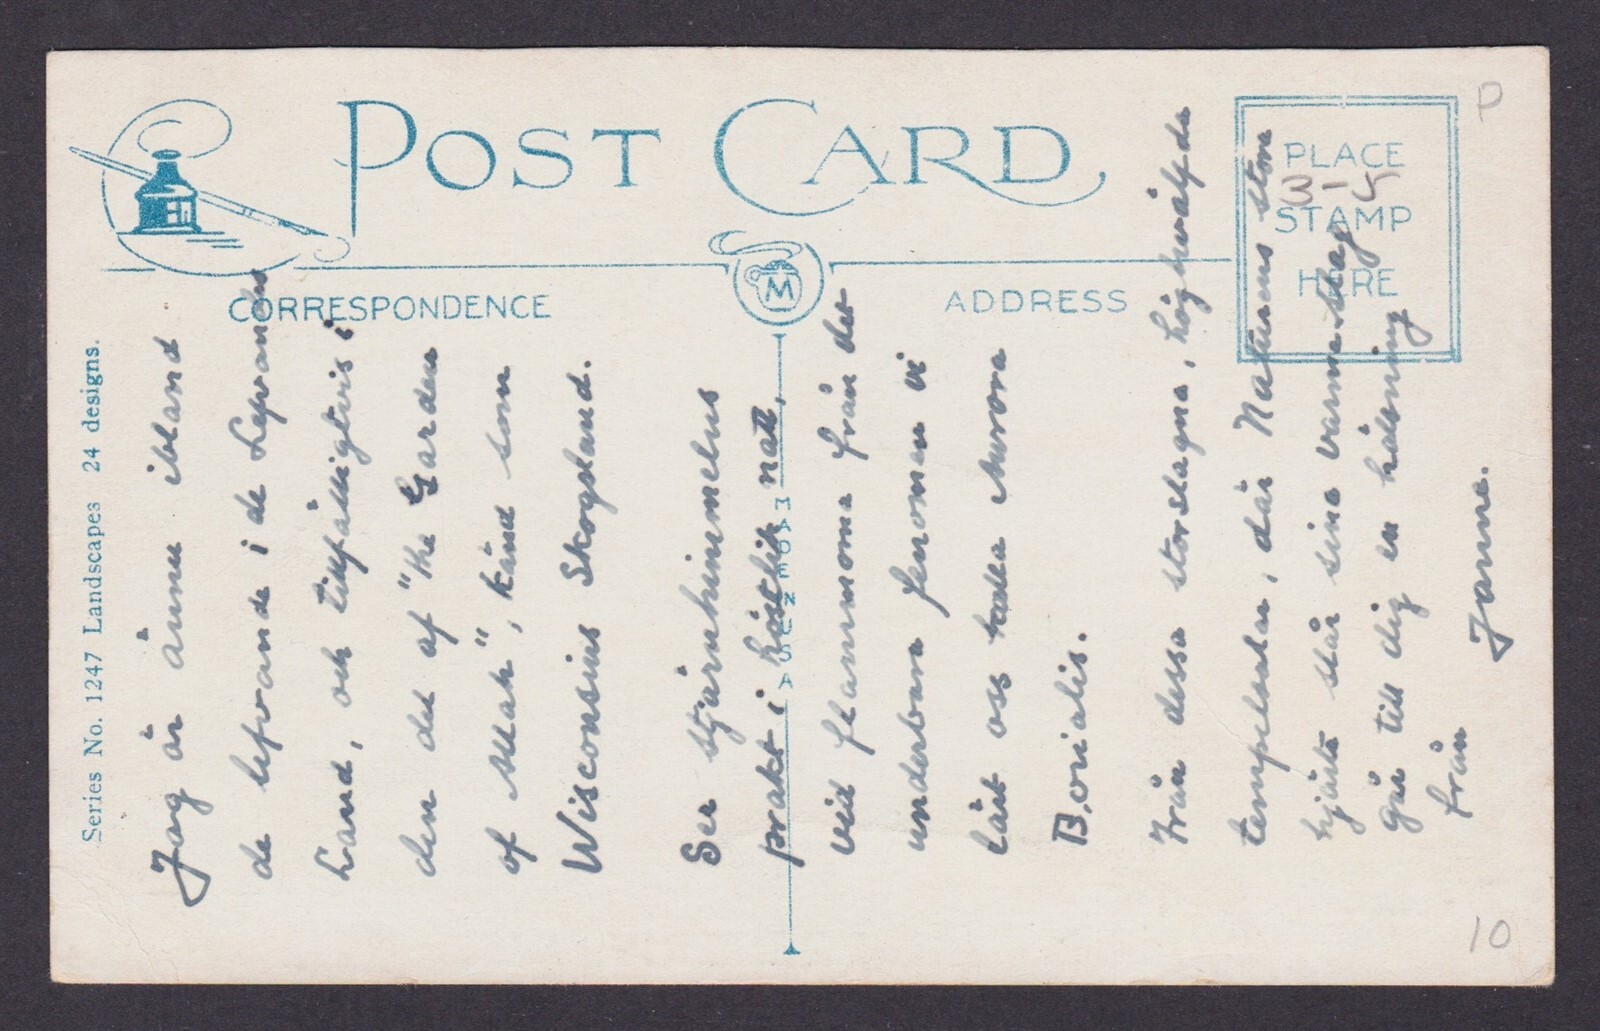 POST CARD
CORRESPONDENCE
ADDRESS
PLACE
STAMP
HERE
M
Series No. 1247 Landscapes 24 designs.
Jag är ännu ibland
de lefvande i de Lefvandes
Land, och tillfälligtvis i
den del af "the Garden
of Allah", känd som
Wisconsins Skogsland.
Ser stjärnhimmelns
prakt i höstlik natt,
vid flammorna från det
underbara fenomen vi
lärt oss kalla Aurora
Borialis.
Från dessa storslagna, höghvälfda
tempelsalar, där Naturens stora
hjärta slår sina varma slag
går till dig en hälsning
från
Janne.
10